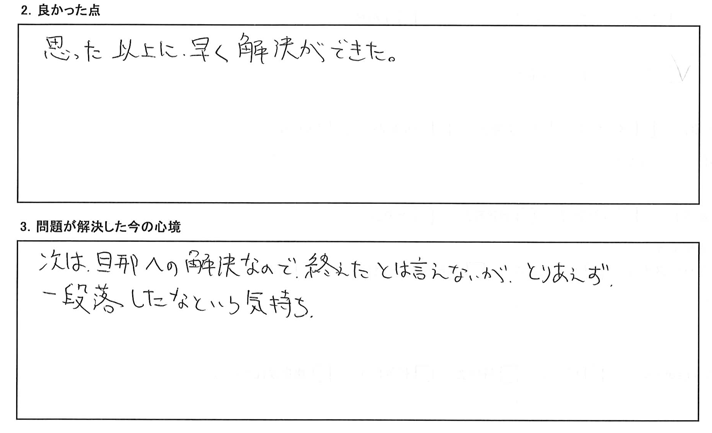 2. 良かった点
思った以上に、早く解決ができた。
3. 問題が解決した今の心境
次は、旦那への解決なので、終えたとは言えないが、とりあえず、
一段落したなという気持ち、